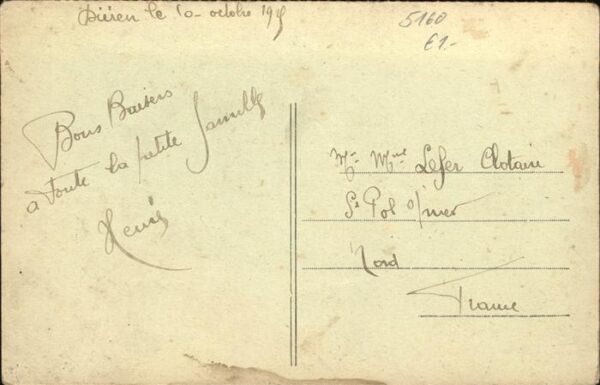 le 10 octobre
5160
€1-
Bons Baisers
a toute la petite famille
Henri
Mr Mme Lefer Clotaire
St Pol s/mer
Nord
France